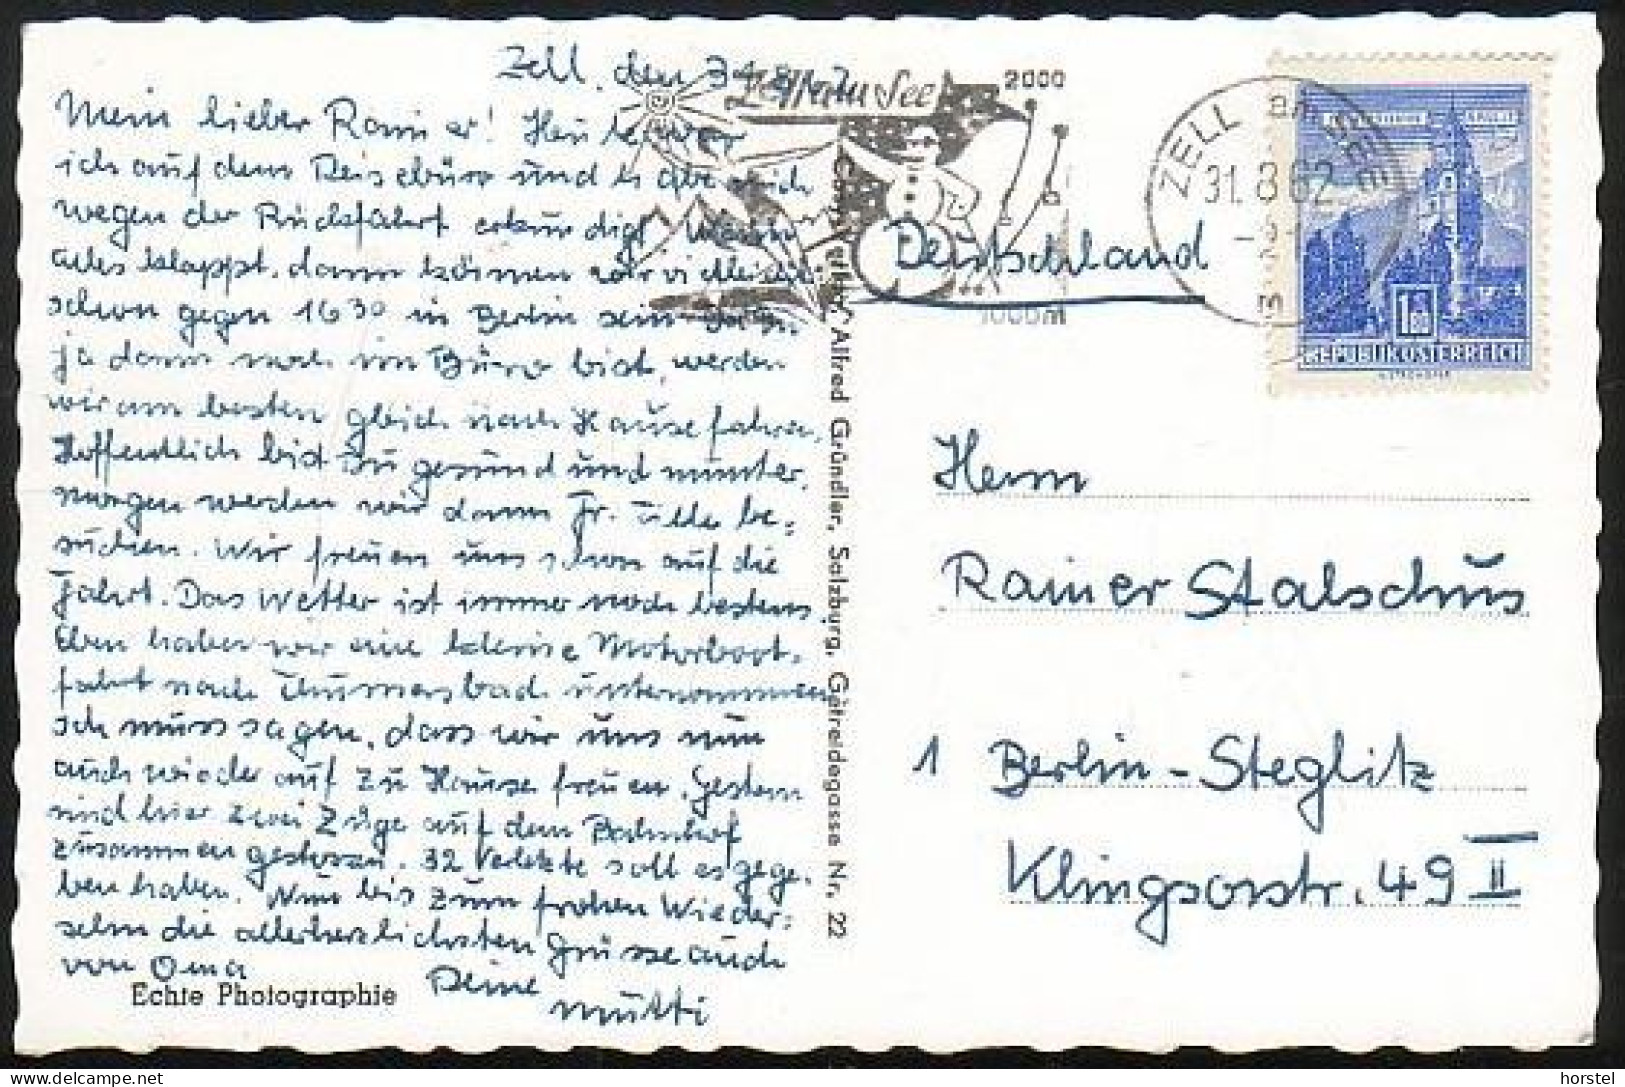 Zell, den 31.8.
Mein lieber Rainer! Heute war
ich auf dem Reisebüro und habe mich
wegen der Rückfahrt erkundigt. Wenn
alles klappt, dann können wir vielleicht
schon gegen 16 30 in Berlin sein. Du
ja dann noch im Büro bist, werden
wir am besten gleich nach Hause fahren.
Hoffentlich bist Du gesund und munter.
morgen werden wir dann Fr. be=
suchen. Wir freuen uns schon auf die
Fahrt. Das Wetter ist immer noch bestens
Eben haben wir eine kleine Motorboot=
fahrt nach Thumersbach unternommen
Ich muss sagen, dass wir uns nun
auch wieder auf zu Hause freuen. Gestern
sind hier zwei Züge auf dem Bahnhof
zusammen gestossen. 32 Verletzte soll es gege=
ben haben. Nun bis zum frohen Wieder=
sehn die allerherzlichsten Grüsse auch
von Oma
Deine
Mutti
Echte Photographie
Alfred Gründler, Salzburg, Getreidegasse Nr. 22
Zell am See
2000
1000m
ZELL AM SEE
31.8.62
REPUBLIK ÖSTERREICH
Deutschland
Herrn
Rainer Stalschus
1 Berlin-Steglitz
Klingsorstr. 49 II
horstel
www.delcampe.net